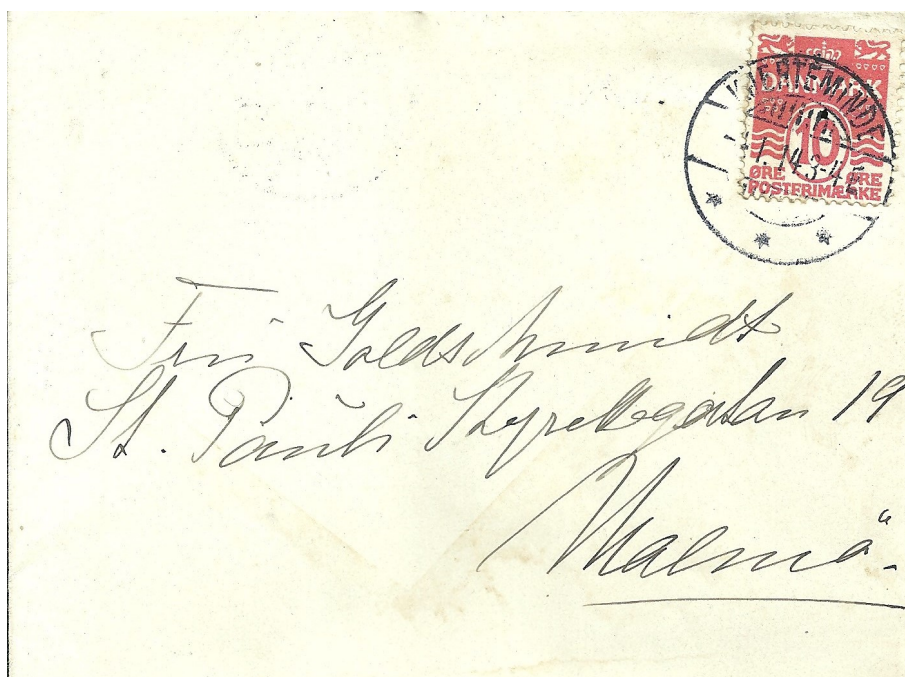 KJERTEMINDE
DANMARK
10
1.14.3-4E
ØRE ØRE
POSTFRIMÆRKE
Fru Goldschmidt
St. Pauli Kyrkogatan 19
Malmö.